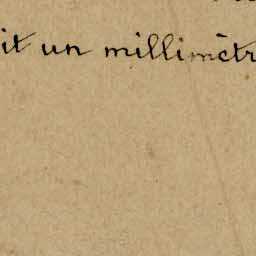 it un millimètr